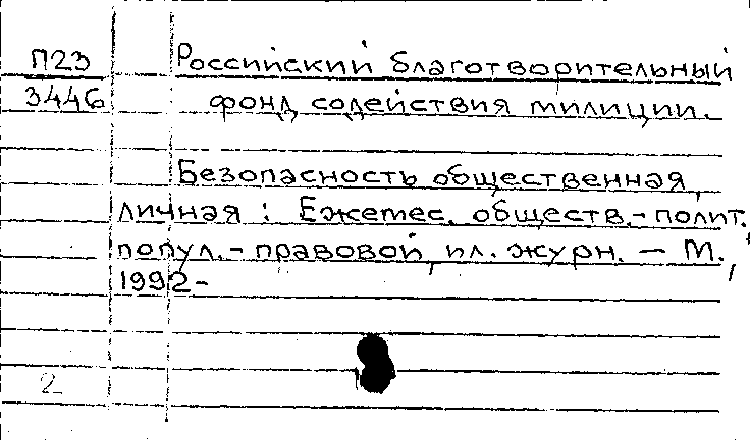 П23
3446
Российский благотворительный
фонд содействия милиции.
Безопасность общественная,
личная : Ежемес. обществ.-полит.,
попул.-правовой, ил. журн. — М.,
1992-
2